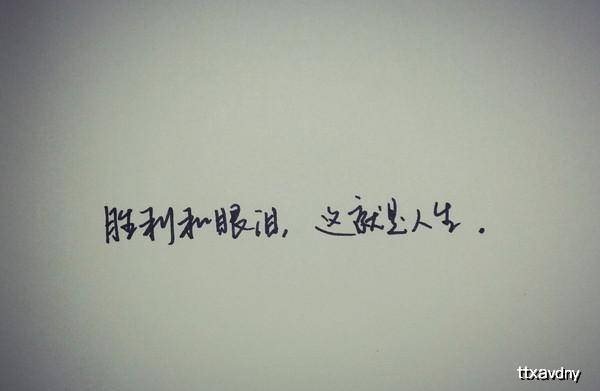 胜利和眼泪，这就是人生．
ttxavdny